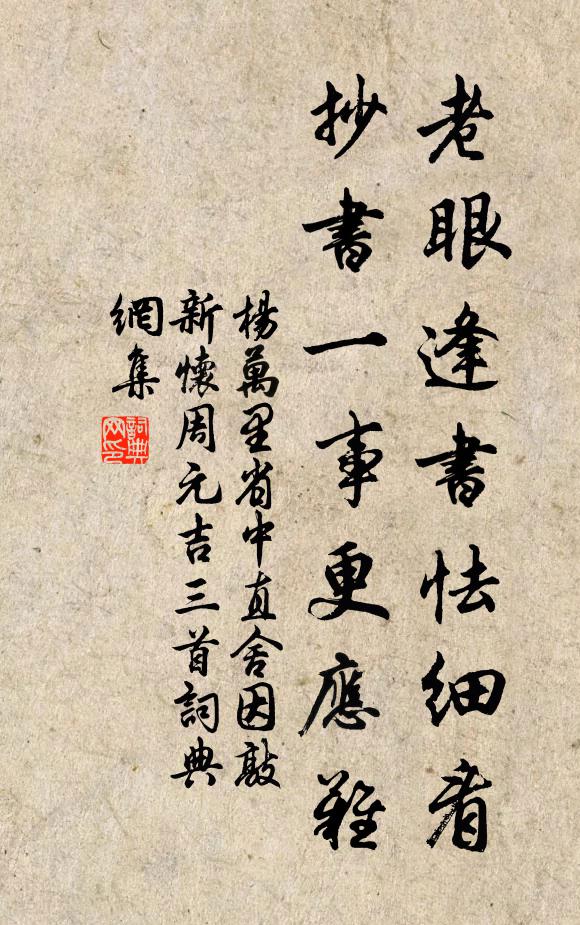 老眼逢書怯細看
抄書一事更應難
楊萬里省中直舍因敲
新懷周元吉三首詞典
網集
詞典
网印